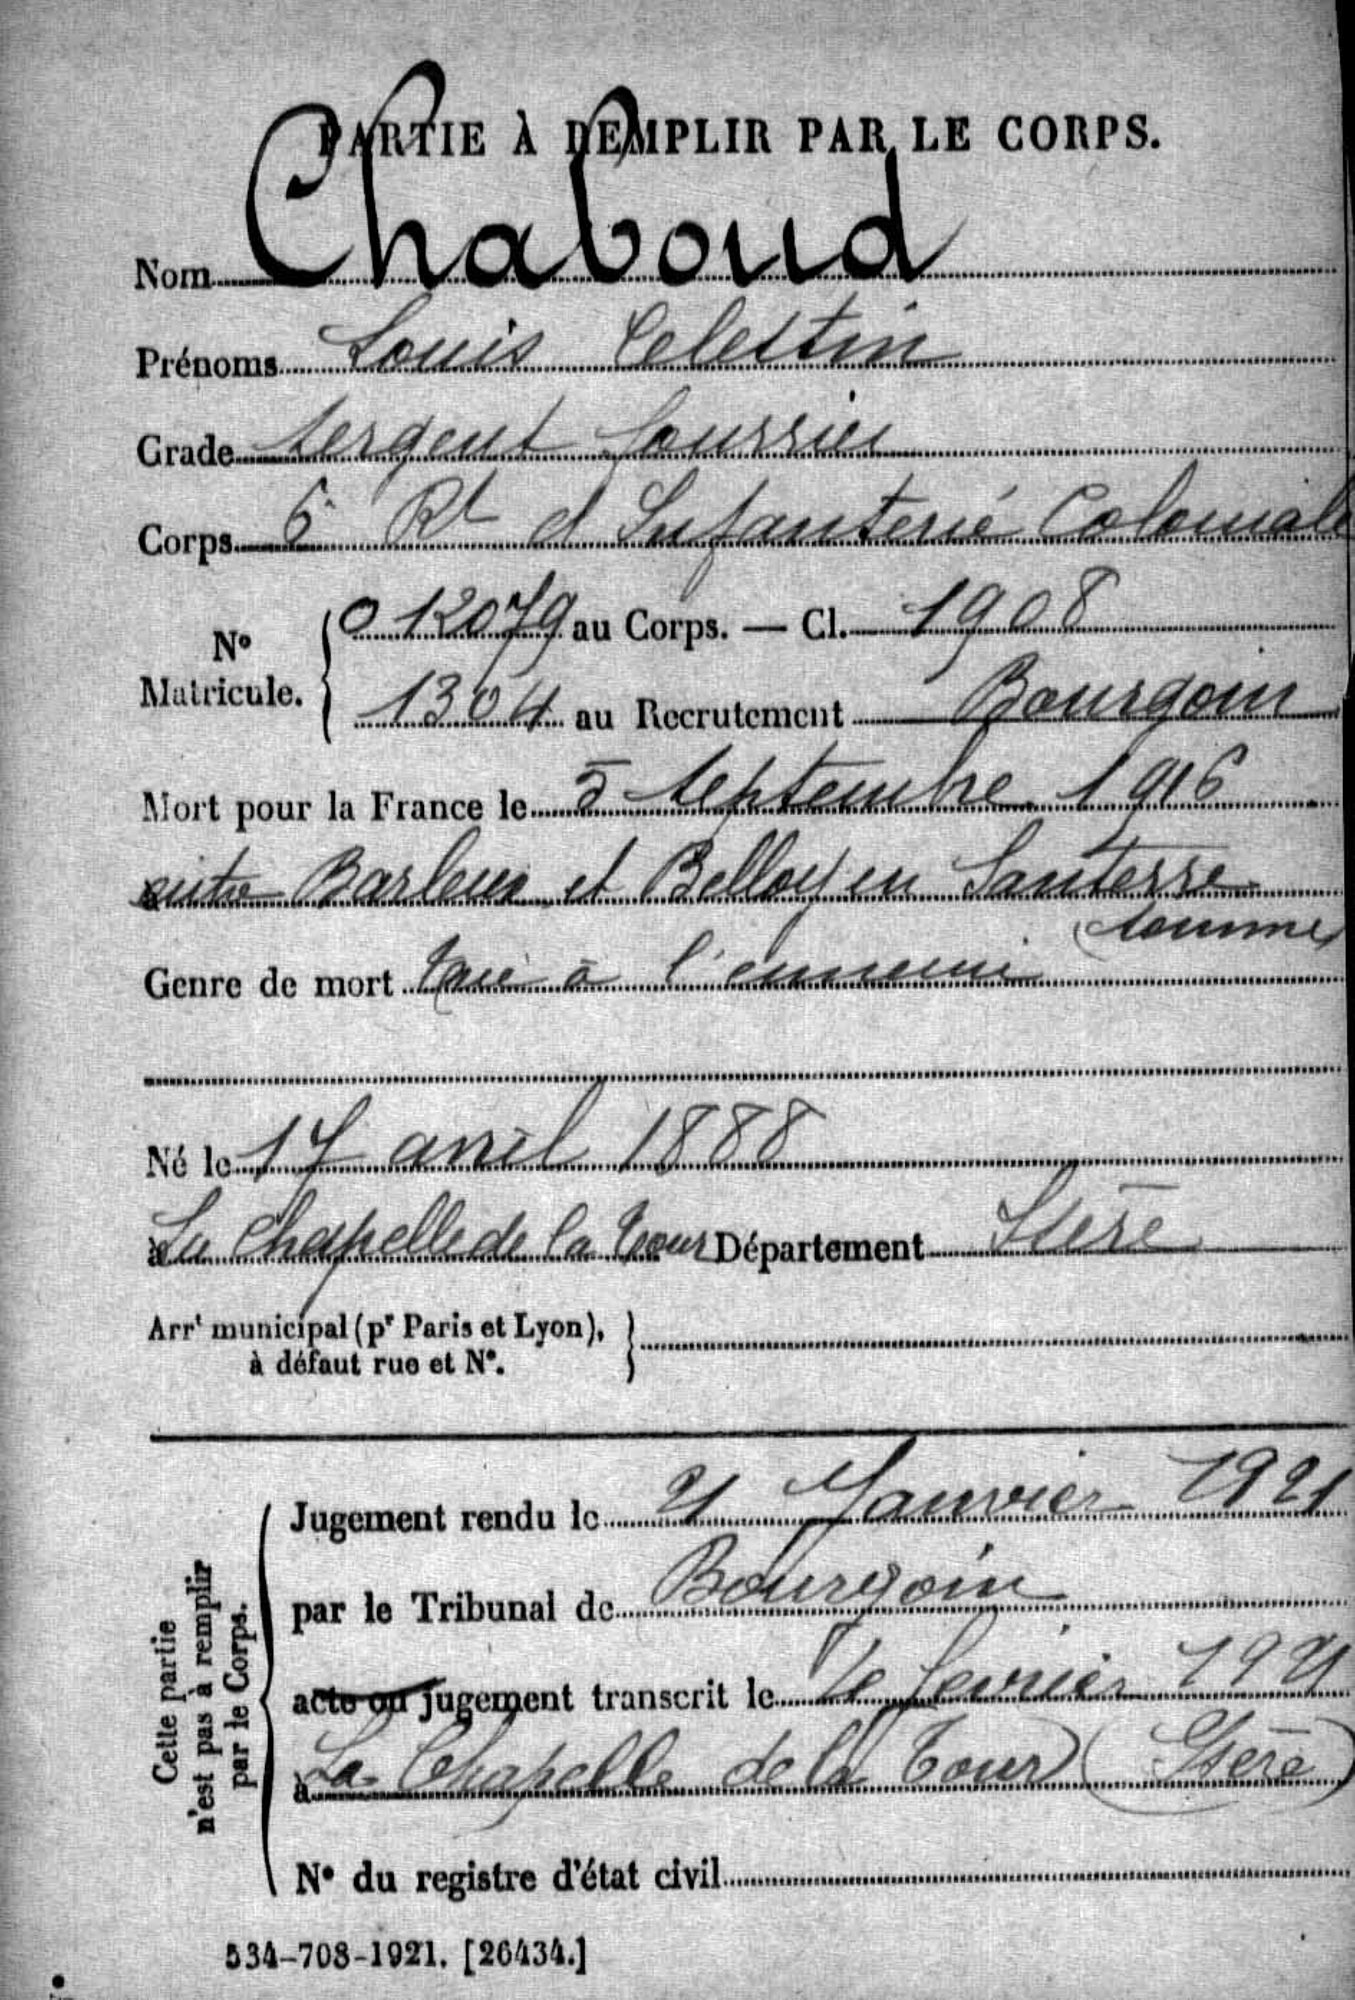 PARTIE À REMPLIR PAR LE CORPS.
Nom Chaboud
Prénoms Louis Celestin
Grade Sergent fourrier
Corps 6e Rt d Infanterie Coloniale
No Matricule. { 0 12079 au Corps. — Cl. 1908
1304 au Recrutement Bourgoin
Mort pour la France le 5 Septembre 1916
à entre Barleux et Belloy en Santerre
(Somme)
Genre de mort Tué à l'ennemi
Né le 17 avril 1888
à La Chapelle de la Tour Département Isère
Arrt municipal (pr Paris et Lyon), }
à défaut rue et No.
Cette partie
n'est pas à remplir
par le Corps.
Jugement rendu le 21 Janvier 1921
par le Tribunal de Bourgoin
acte ou jugement transcrit le février 1921
à La Chapelle de la Tour (Isère)
No du registre d'état civil
534-708-1921. [26434.]